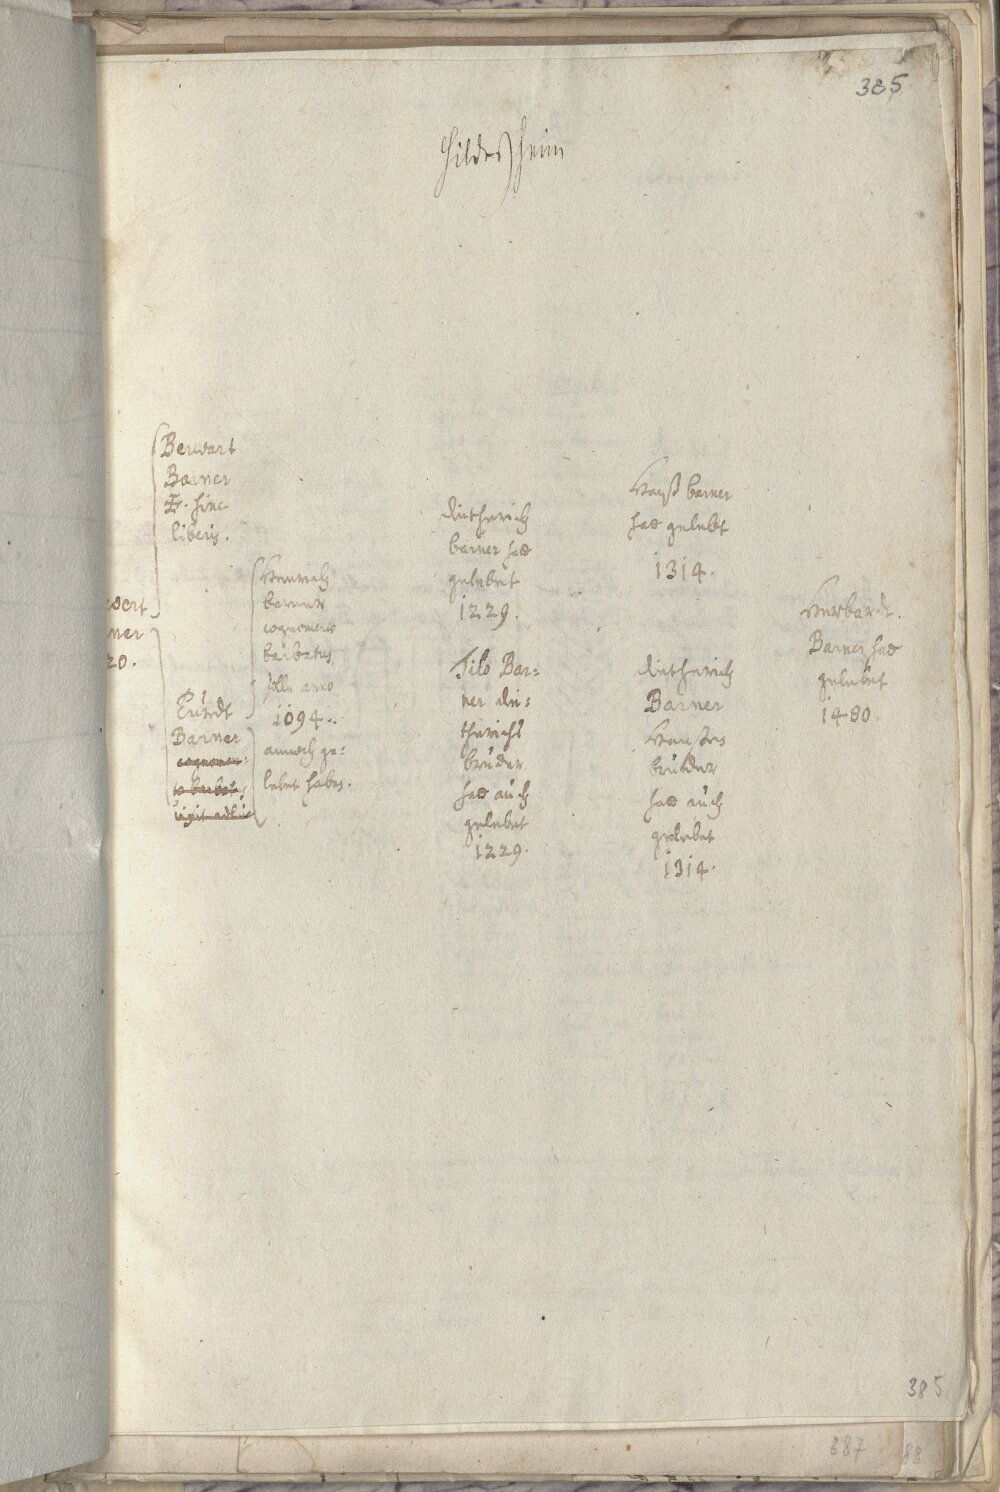 385
Hildesheim
Berwart
Barner
sine
liberis.
wert
ner
20.
Curdt
Barner
Henrich
barner
cognomento
barbatus
solle anno
1094.
annoch ge:
lebet haben.
Dietherich
barner hat
gelebet
1229.
Tilo Bar:
ner Die:
therichs
bruder
hat auch
gelebet
1229.
Hanß barner
hat gelebt
1314.
Dietherich
Barner
Hanses
bruder
hat auch
gelebet
1314.
Herbardt.
Barner hat
gelebet
1480.
385
387
88